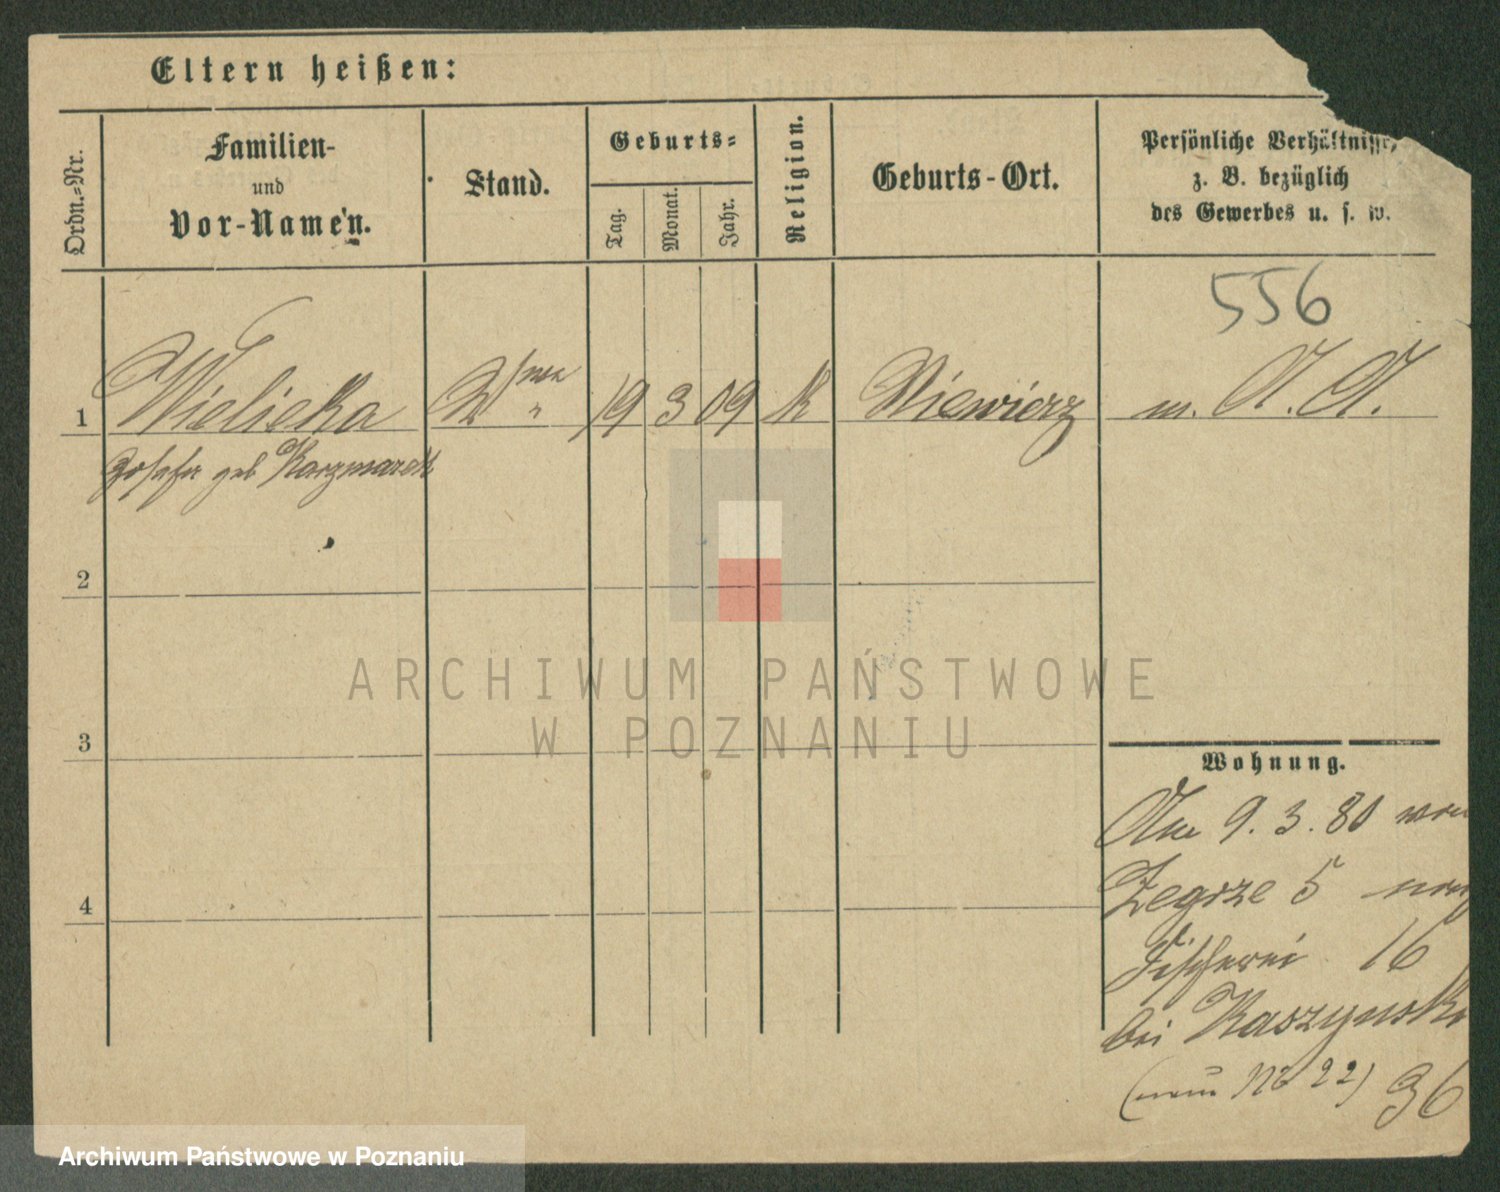 Eltern heißen:
Ordn.=Nr.
Familien-
und
Vor-Namen.
Stand.
Geburts=
Tag.
Monat.
Jahr.
Religion.
Geburts-Ort.
Persönliche Verhältnisse,
z. B. bezüglich
des Gewerbes u. s. w.
556
1 Wielicka 19 3 09 k Niewierz
Josefa geb Karzmarek
2
3
4
Wohnung.
Am 9. 3. 80 von
Zegrze 5 nach
Fischerei 16
bei Kaszynski
(neue No 22) 36
ARCHIWUM PAŃSTWOWE
W POZNANIU
Archiwum Państwowe w Poznaniu